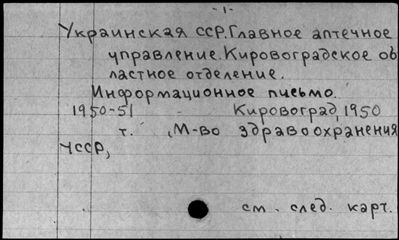 -1-
Украинская ССР. Главное аптечное
управление. Кировоградское об
ластное отделение.
Информационное письмо.
1950-51 Кировоград, 1950
т. , М-во здравоохранения
УССР,
см. след. карт.